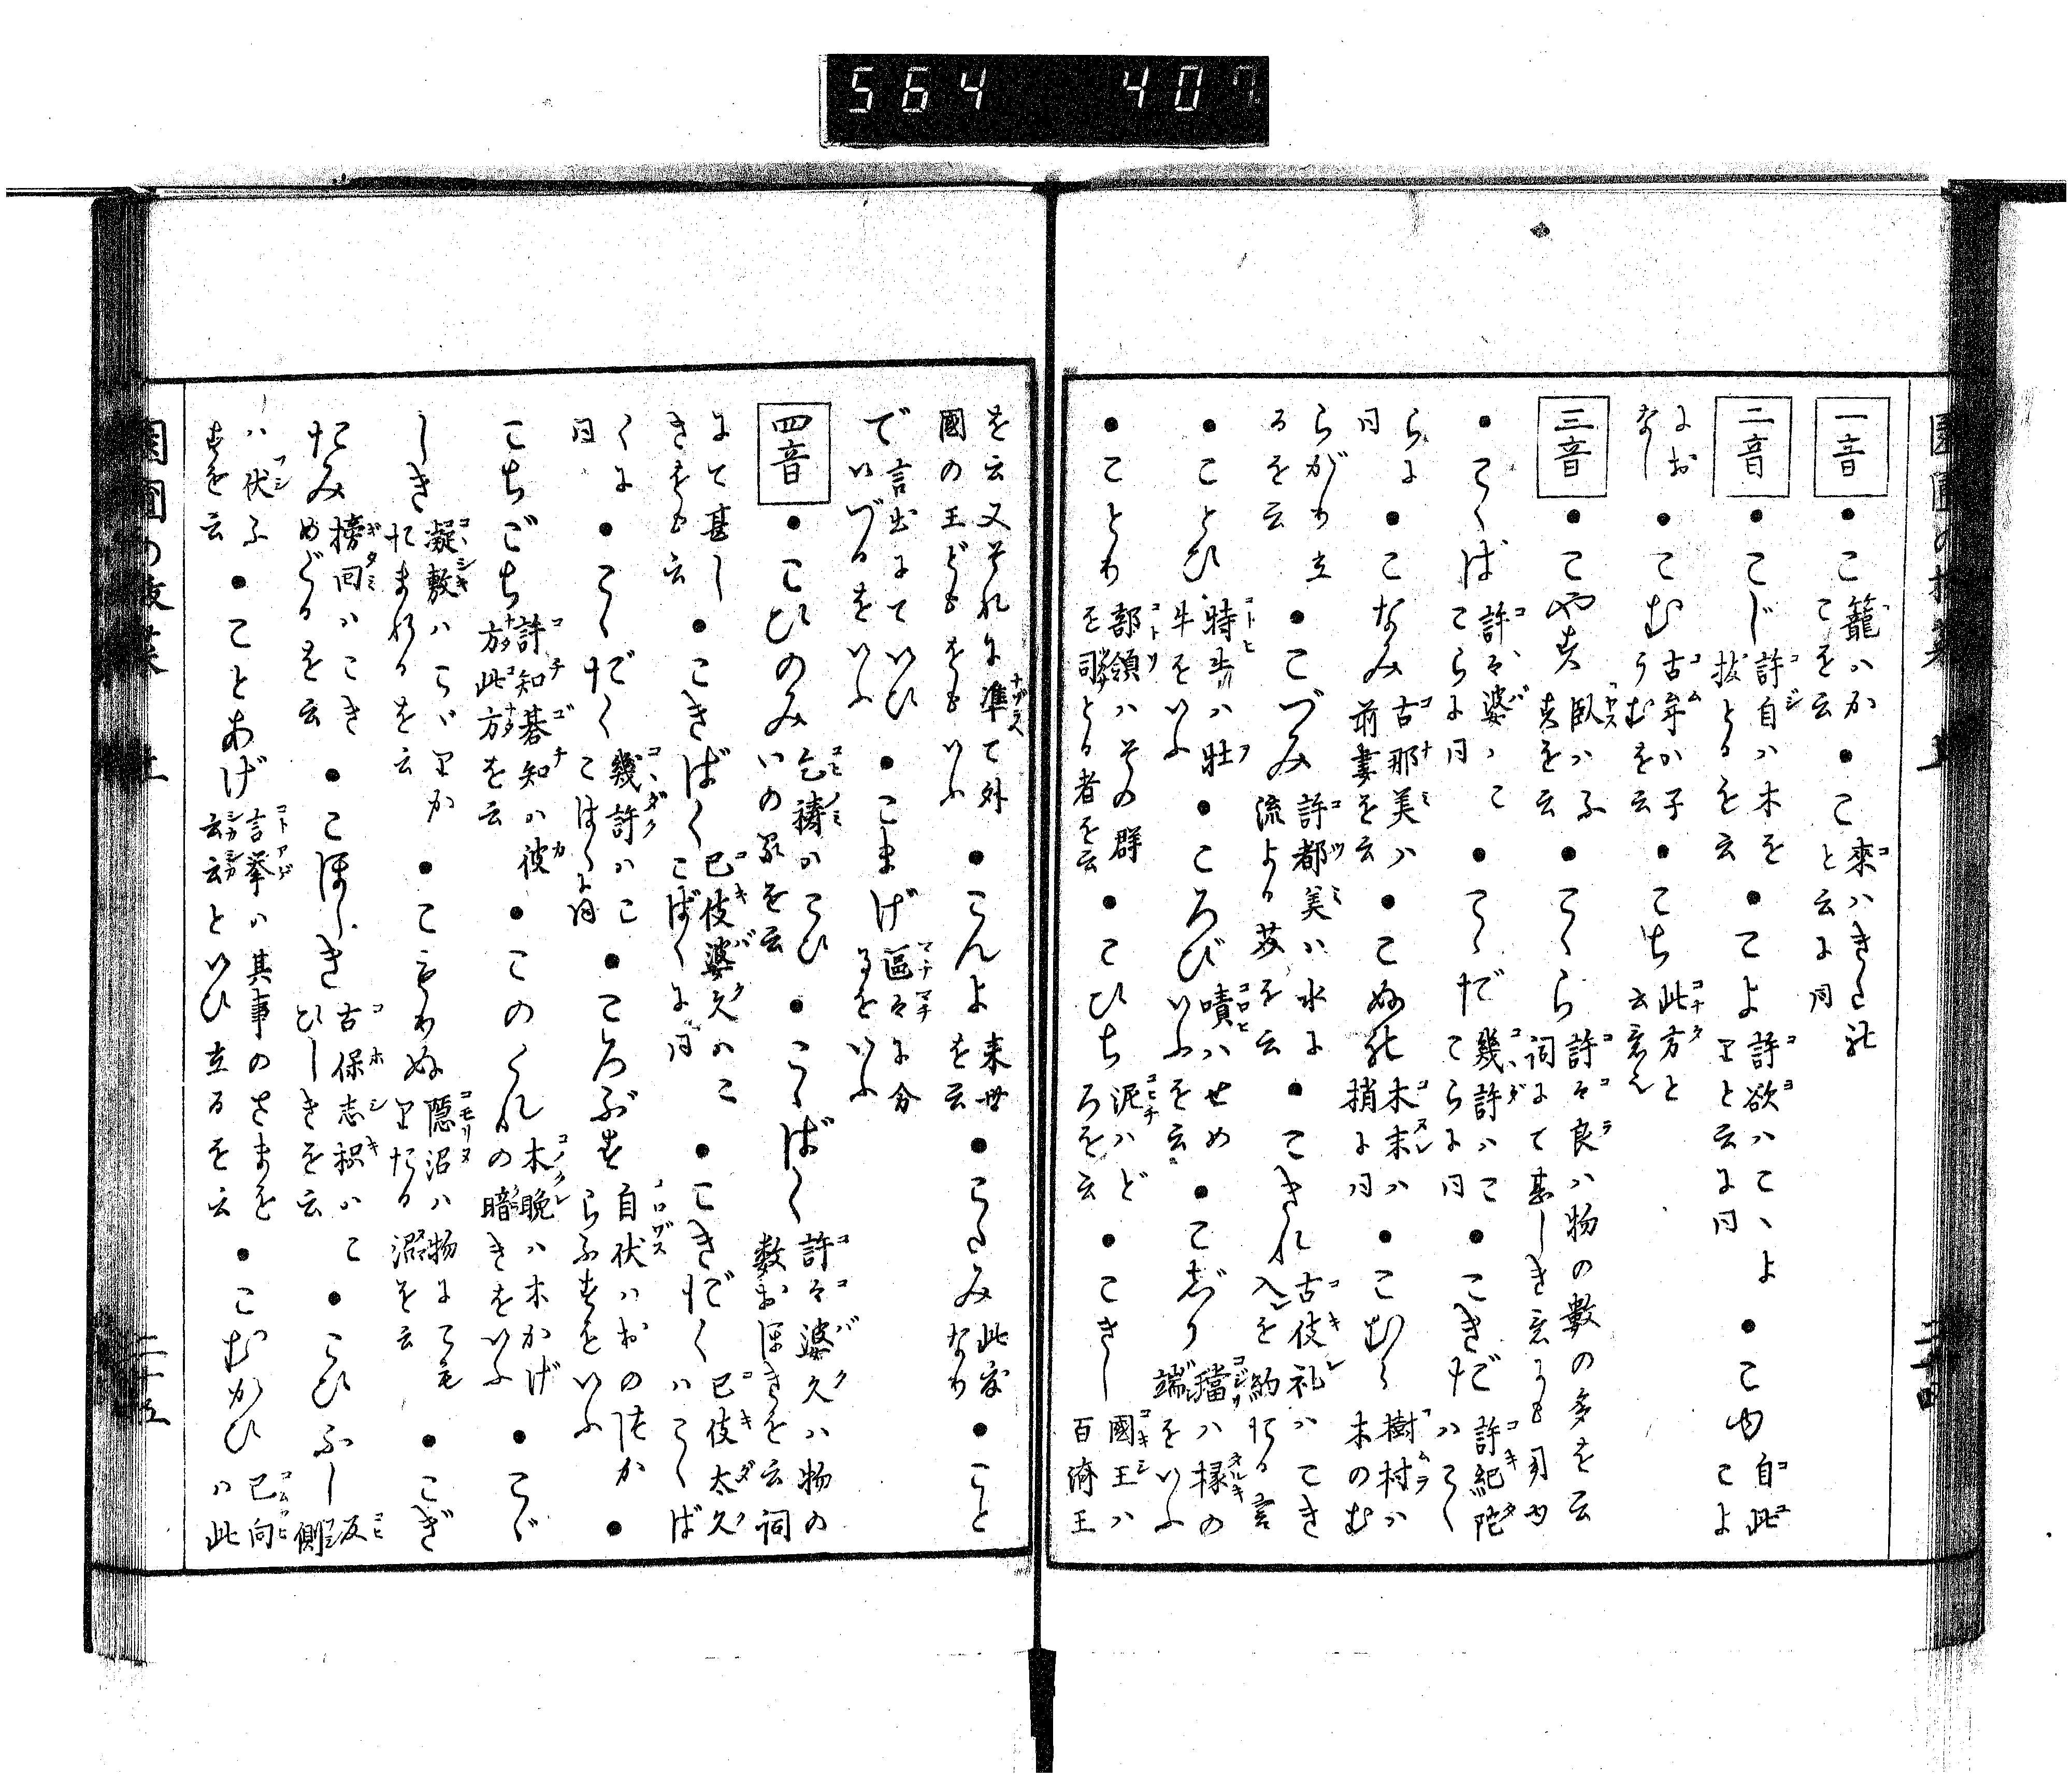 564 407
一音 ●こ 籠ハかこを云 ●こ 來ハきたれと云に同
二音 ●こじ 許自ハ木を抜とるを云 ●こよ 許欲ハこゝよりと云に同 ●こゆ 自此こよ
におなし ●こむ 古牟ハ子うむを云 ●こち 此方と云意也
三音 ●こやす 臥ハふすを云 ●こゝら 許々良ハ物の數の多を云詞にて甚しき意にも用ゆ
●こゝば 許々婆ハこゝらに同 ●こゝだ 幾許ハこゝらに同 ●こきだ 許紀陀ハこゝ
らに同 ●こなみ 古那美ハ前妻を云 ●こぬれ 木末ハ梢に同 ●こむら 樹村ハ木のむ
らがり立るを云 ●こづみ 許都美ハ水に流よる芥を云 ●こきれ 古伎礼ハこき入を約たる言
●ことひ 特牛ハ牡牛をいふ ●ころび 嘖ハせめいふを云 ●こじり 璫ハ椽の端をいふ
●ことり 部領ハその群を司とる者を云 ●こひち 泥ハどろを云 ●こきし 國王ハ百濟王
を云又それに準て外國の王どもをもいふ ●こんよ 来世を云 ●こたみ 此度なり ●こと
で 言出にていひいづるをいふ ●こまげ 區々に分るをいふ
四音 ●こひのみ 乞祷ハこひいのるを云 ●こゝばく 許々婆久ハ物の数おほきを云詞
にて甚しきをも云 ●こきばく 已伎婆久ハこゝばくに同 ●こきだく 已伎太久ハこゝば
くに同 ●こゝだく 幾許ハこゝばくに同 ●ころぶす 自伏ハおのづからふすをいふ ●
こちごち 許知碁知ハ彼方此方を云 ●このくれ 木晩ハ木かげの暗きをいふ ●こゞ
しき 凝敷ハこゞりかたまれるを云 ●こもりぬ 隠沼ハ物にこもりたる沼を云 ●こぎ
たみ 榜回ハこきめぐるを云 ●こほしき 古保志積ハこひしきを云 ●こひふし 反側
ハ伏ふすを云 ●ことあげ 言挙ハ其事のさまを云云といひ立るを云 ●こむかひ 已向ハ此